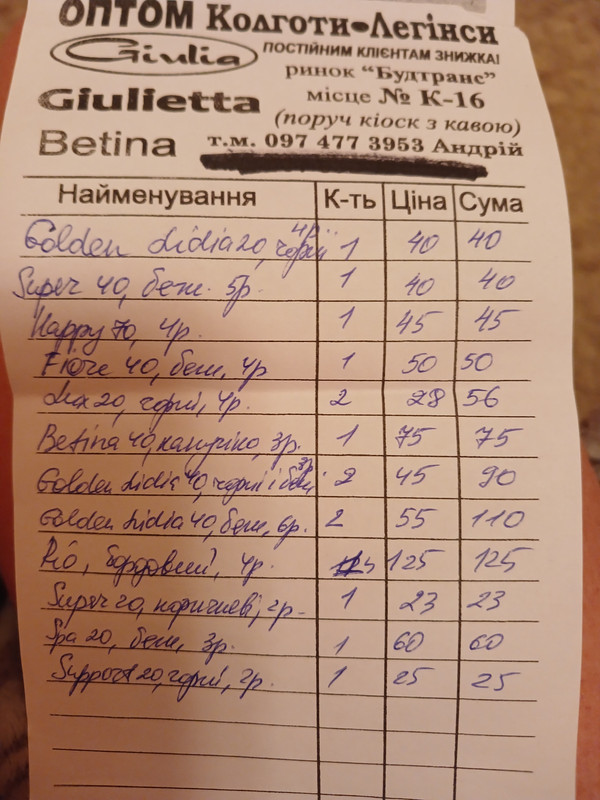 ОПТОМ Колготи•Легінси
Giulia ПОСТІЙНИМ КЛІЄНТАМ ЗНИЖКА!
ринок “Будтранс”
Giulietta місце № К-16
(поруч кіоск з кавою)
Betina т.м. 097 477 3953 Андрій
Найменування К-ть Ціна Сума
Golden Lidia 20, чорні 4р. 1 40 40
Super 40, беж. 5р. 1 40 40
Happy 70, 4р. 1 45 45
Fiore 40, беж, 4р 1 50 50
Lux 20, чорні, 4р. 2 28 56
Betina 40, капучіно, 3р. 1 75 75
Golden Lidia 40, чорні і беж 3р. 2 45 90
Golden Lidia 40, беж, 6р. 2 55 110
Rio, бордовий, 4р. 125 125
Super 20, коричневі, 2р. 1 23 23
Spa 20, беж, 3р. 1 60 60
Support 20, чорні, 2р. 1 25 25